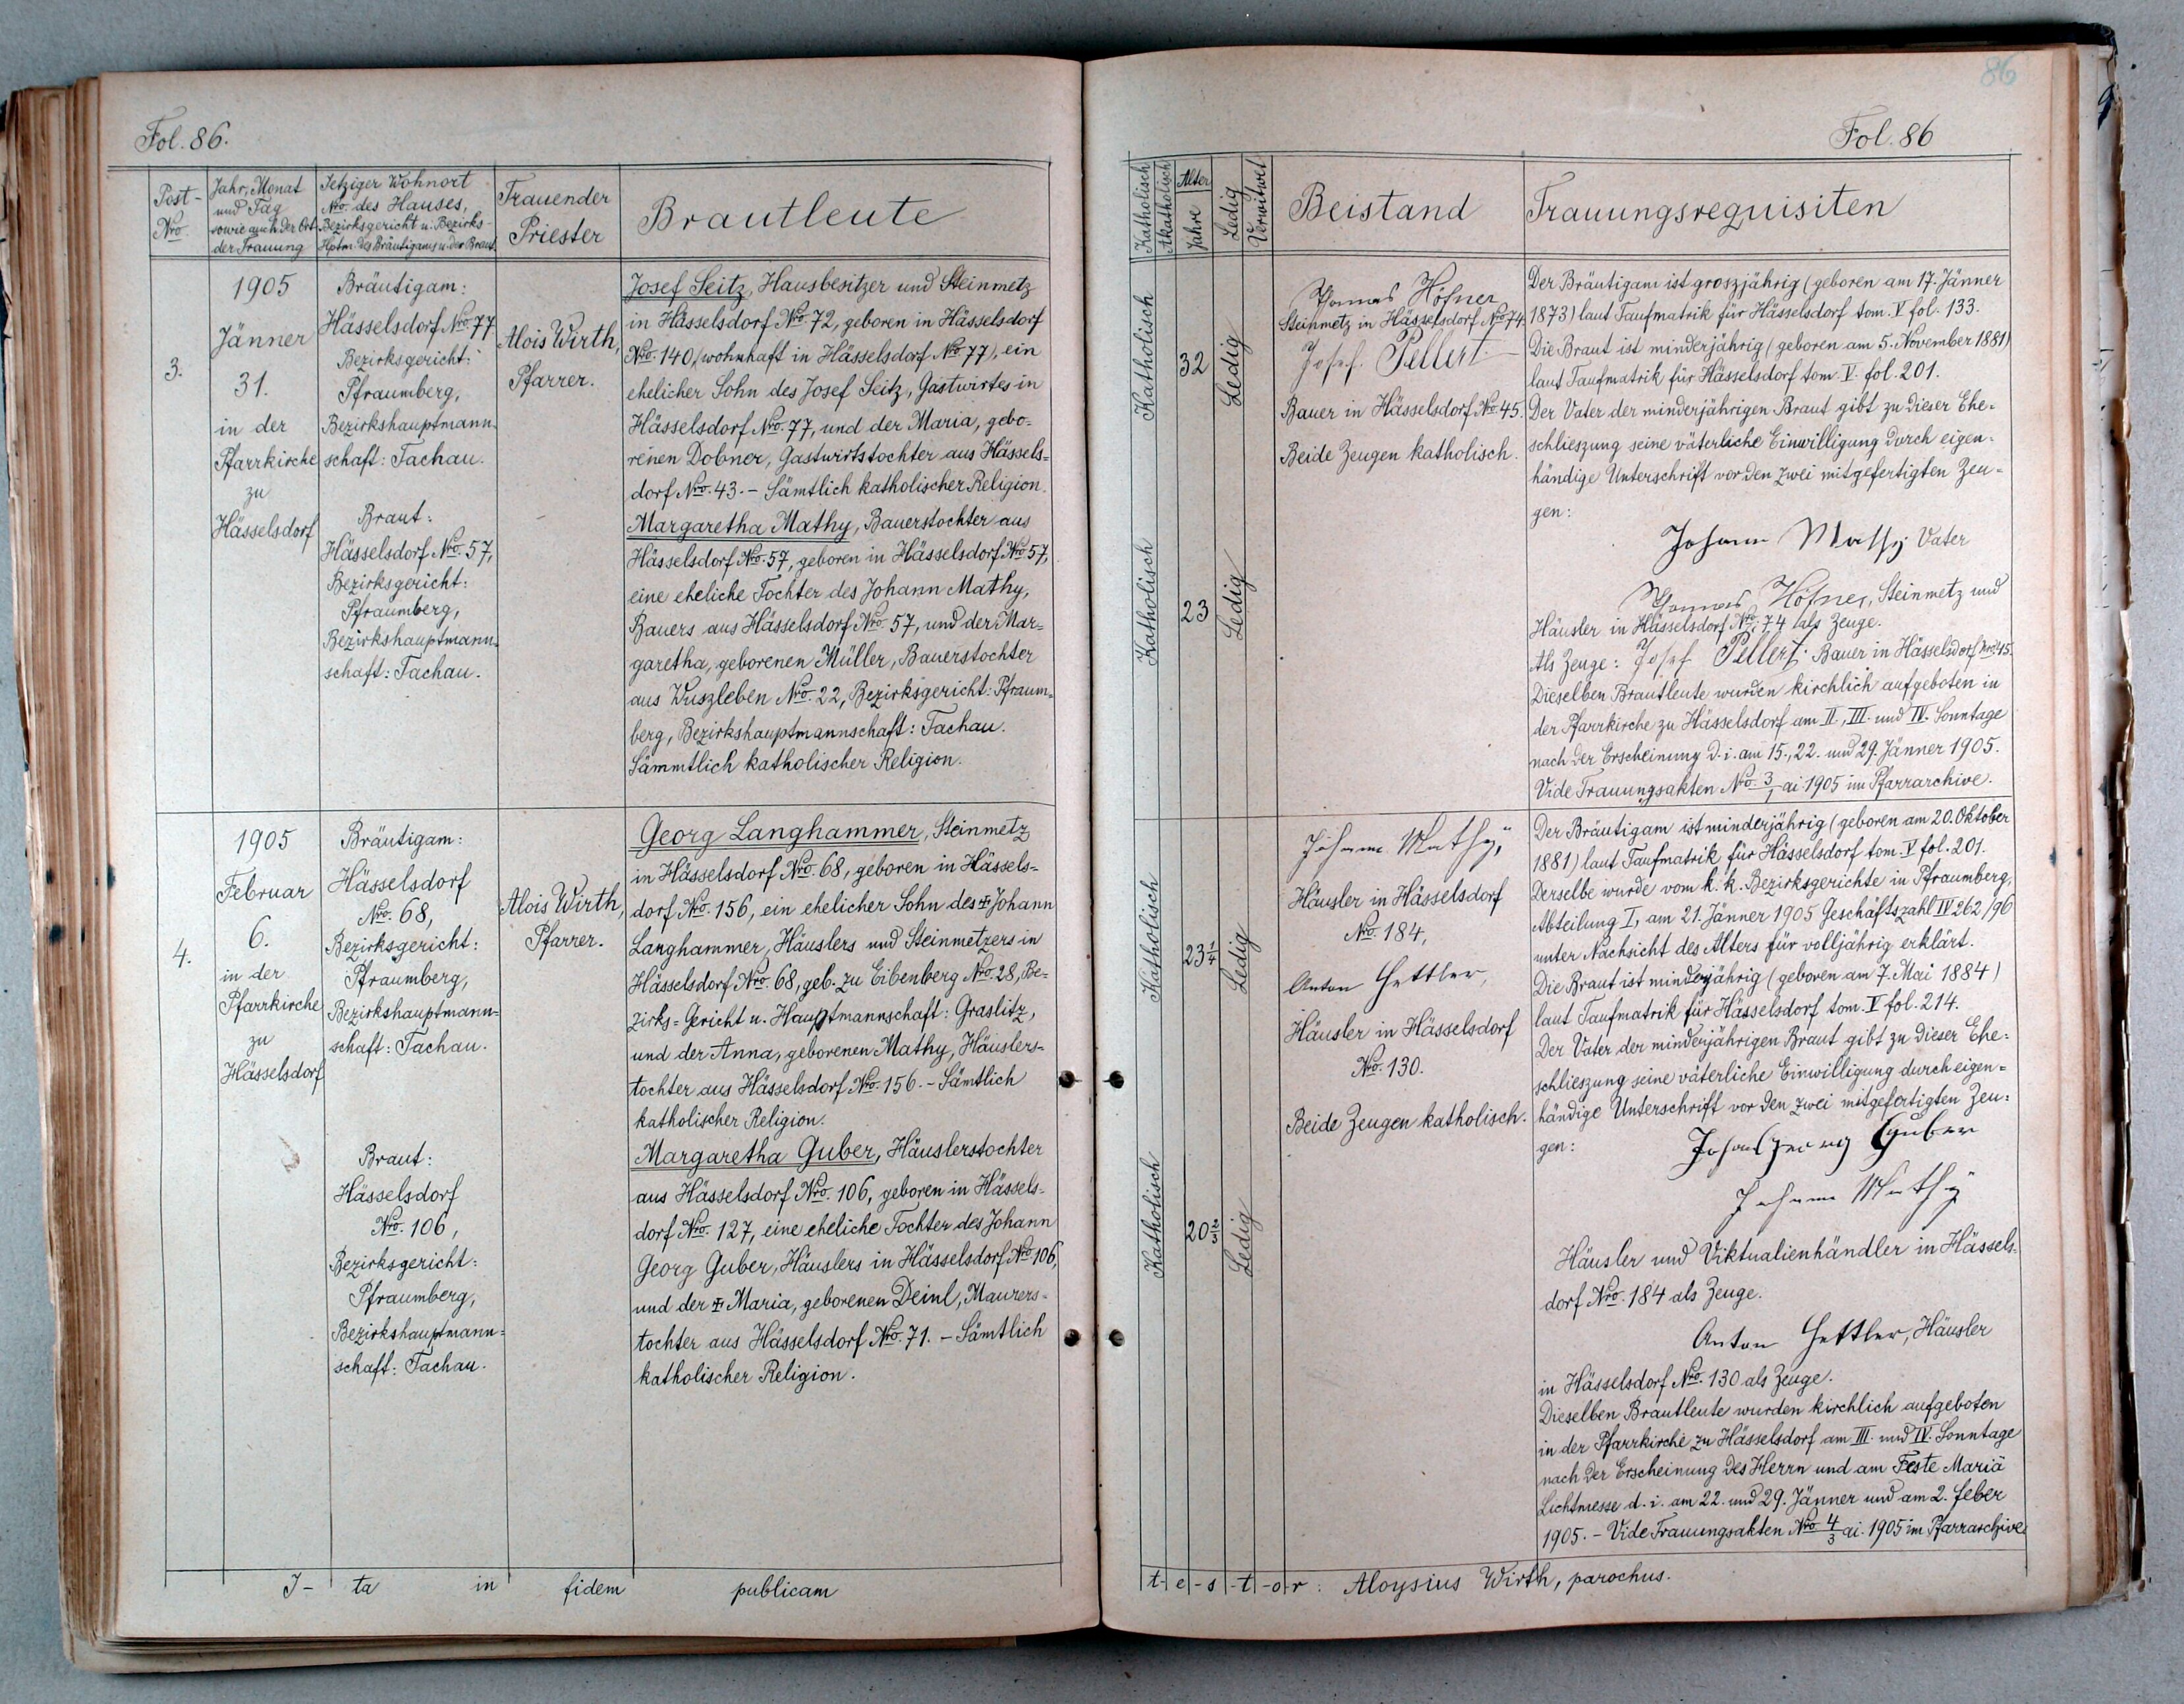 Fol. 86.
Post-Nro.
Jahr, Monat
und Tag
sowie auch der Ort
der Trauung
Jetziger Wohnort
Nro. des Hauses,
Bezirksgericht u. Bezirks-
Hptm. des Bräutigams u. der Braut
Trauender
Priester
Brautleute
3.
1905
Jänner
31.
in der
Pfarrkirche
zu
Hässelsdorf
Bräutigam:
Hässelsdorf Nro. 77
Bezirksgericht:
Pfraumberg,
Bezirkshauptmann-
schaft: Tachau.
Braut:
Hässelsdorf Nro. 57,
Bezirksgericht:
Pfraumberg,
Bezirkshauptmann-
schaft: Tachau.
Alois Wirth,
Pfarrer.
Josef Seitz, Hausbesitzer und Steinmetz
in Hässelsdorf Nro. 72, geboren in Hässelsdorf
Nro. 140, (wohnhaft in Hässelsdorf Nro. 77), ein
ehelicher Sohn des Josef Seitz, Gastwirtes in
Hässelsdorf Nro. 77, und der Maria, gebo-
renen Dobner, Gastwirtstochter aus Hässels-
dorf Nro. 43. – Sämtlich katholischer Religion.
Margaretha Mathy, Bauerstochter aus
Hässelsdorf Nro. 57, geboren in Hässelsdorf Nro. 57,
eine eheliche Tochter des Johann Mathy,
Bauers aus Hässelsdorf Nro. 57, und der Mar-
garetha, geborenen Müller, Bauerstochter
aus Wuszleben Nro. 22, Bezirksgericht: Pfraum-
berg, Bezirkshauptmannschaft: Tachau.
Sämmtlich katholischer Religion.
4.
1905
Februar
6.
in der
Pfarrkirche
zu
Hässelsdorf
Bräutigam:
Hässelsdorf
Nro. 68,
Bezirksgericht:
Pfraumberg,
Bezirkshauptmann-
schaft: Tachau.
Braut:
Hässelsdorf
Nro. 106,
Bezirksgericht:
Pfraumberg,
Bezirkshauptmann-
schaft: Tachau.
Alois Wirth,
Pfarrer.
Georg Langhammer, Steinmetz
in Hässelsdorf Nro. 68, geboren in Hässels-
dorf Nro. 156, ein ehelicher Sohn des ‡ Johann
Langhammer, Häuslers und Steinmetzers in
Hässelsdorf Nro. 68, geb. zu Eibenberg Nro. 28, Be-
zirks-Gericht u. Hauptmannschaft: Graslitz,
und der Anna, geborenen Mathy, Häuslers-
tochter aus Hässelsdorf Nro. 156. – Sämtlich
katholischer Religion.
Margaretha Guber, Häuslerstochter
aus Hässelsdorf Nro. 106, geboren in Hässels-
dorf Nro. 127, eine eheliche Tochter des Johann
Georg Guber, Häuslers in Hässelsdorf Nro. 106,
und der ‡ Maria, geborenen Deinl, Maurers-
tochter aus Hässelsdorf Nro. 71. – Sämtlich
katholischer Religion.
I- ta in fidem publicam
86
Fol. 86
Katholisch
Akatholisch
Alter
Jahre
Ledig
Verwitwet
Beistand
Trauungsrequisiten
Katholisch
32
Ledig
Katholisch
23
Ledig
Thomas Höfner
Steinmetz in Hässelsdorf Nro. 74.
Josef Pellert.
Bauer in Hässelsdorf Nro. 45.
Beide Zeugen katholisch.
Der Bräutigam ist groszjährig (geboren am 17. Jänner
1873) laut Taufmatrik für Hässelsdorf tom. V fol. 133.
Die Braut ist minderjährig (geboren am 5. November 1881)
laut Taufmatrik für Hässelsdorf tom. V. fol. 201.
Der Vater der minderjährigen Braut gibt zu dieser Ehe-
schlieszung seine väterliche Einwilligung durch eigen-
händige Unterschrift vor den zwei mitgefertigten Zeu-
gen:
Johann Mathy Vater
Thomas Höfner, Steinmetz und
Häusler in Hässelsdorf Nro. 74 als Zeuge.
Als Zeuge: Josef Pellert. Bauer in Hässelsdorf Nro. 45.
Dieselben Brautleute wurden kirchlich aufgeboten in
der Pfarrkirche zu Hässelsdorf am II., III. und IV. Sonntage
nach der Erscheinung d. i. am 15., 22. und 29. Jänner 1905.
Vide Trauungsakten Nro. 3/1 ai 1905 im Pfarrarchive.
Katholisch
23 1/4
Ledig
Katholisch
20 2/3
Ledig
Johann Mathy,
Häusler in Hässelsdorf
Nro. 184,
Anton Hettler,
Häusler in Hässelsdorf
Nro. 130.
Beide Zeugen katholisch.
Der Bräutigam ist minderjährig (geboren am 20. Oktober
1881) laut Taufmatrik für Hässelsdorf tom. V fol. 201.
Derselbe wurde vom k. k. Bezirksgerichte in Pfraumberg,
Abteilung I, am 21. Jänner 1905 Geschäftszahl IV 262/96
unter Nachsicht des Alters für volljährig erklärt.
Die Braut ist minderjährig (geboren am 7. Mai 1884)
laut Taufmatrik für Hässelsdorf tom. V fol. 214.
Der Vater der minderjährigen Braut gibt zu dieser Ehe-
schlieszung seine väterliche Einwilligung durch eigen-
händige Unterschrift vor den zwei mitgefertigten Zeu-
gen:
Johan georg Guber
Johann Mathy
Häusler und Viktualienhändler in Hässels-
dorf Nro. 184 als Zeuge.
Anton Hettler, Häusler
in Hässelsdorf Nro. 130 als Zeuge.
Dieselben Brautleute wurden kirchlich aufgeboten
in der Pfarrkirche zu Hässelsdorf am III. und IV. Sonntage
nach der Erscheinung des Herrn und am Feste Mariä
Lichtmesse d. i. am 22. und 29. Jänner und am 2. Feber
1905. – Vide Trauungsakten Nro. 4/3 ai. 1905 im Pfarrarchive.
t-e-s-t-o-r: Aloysius Wirth, parochus.